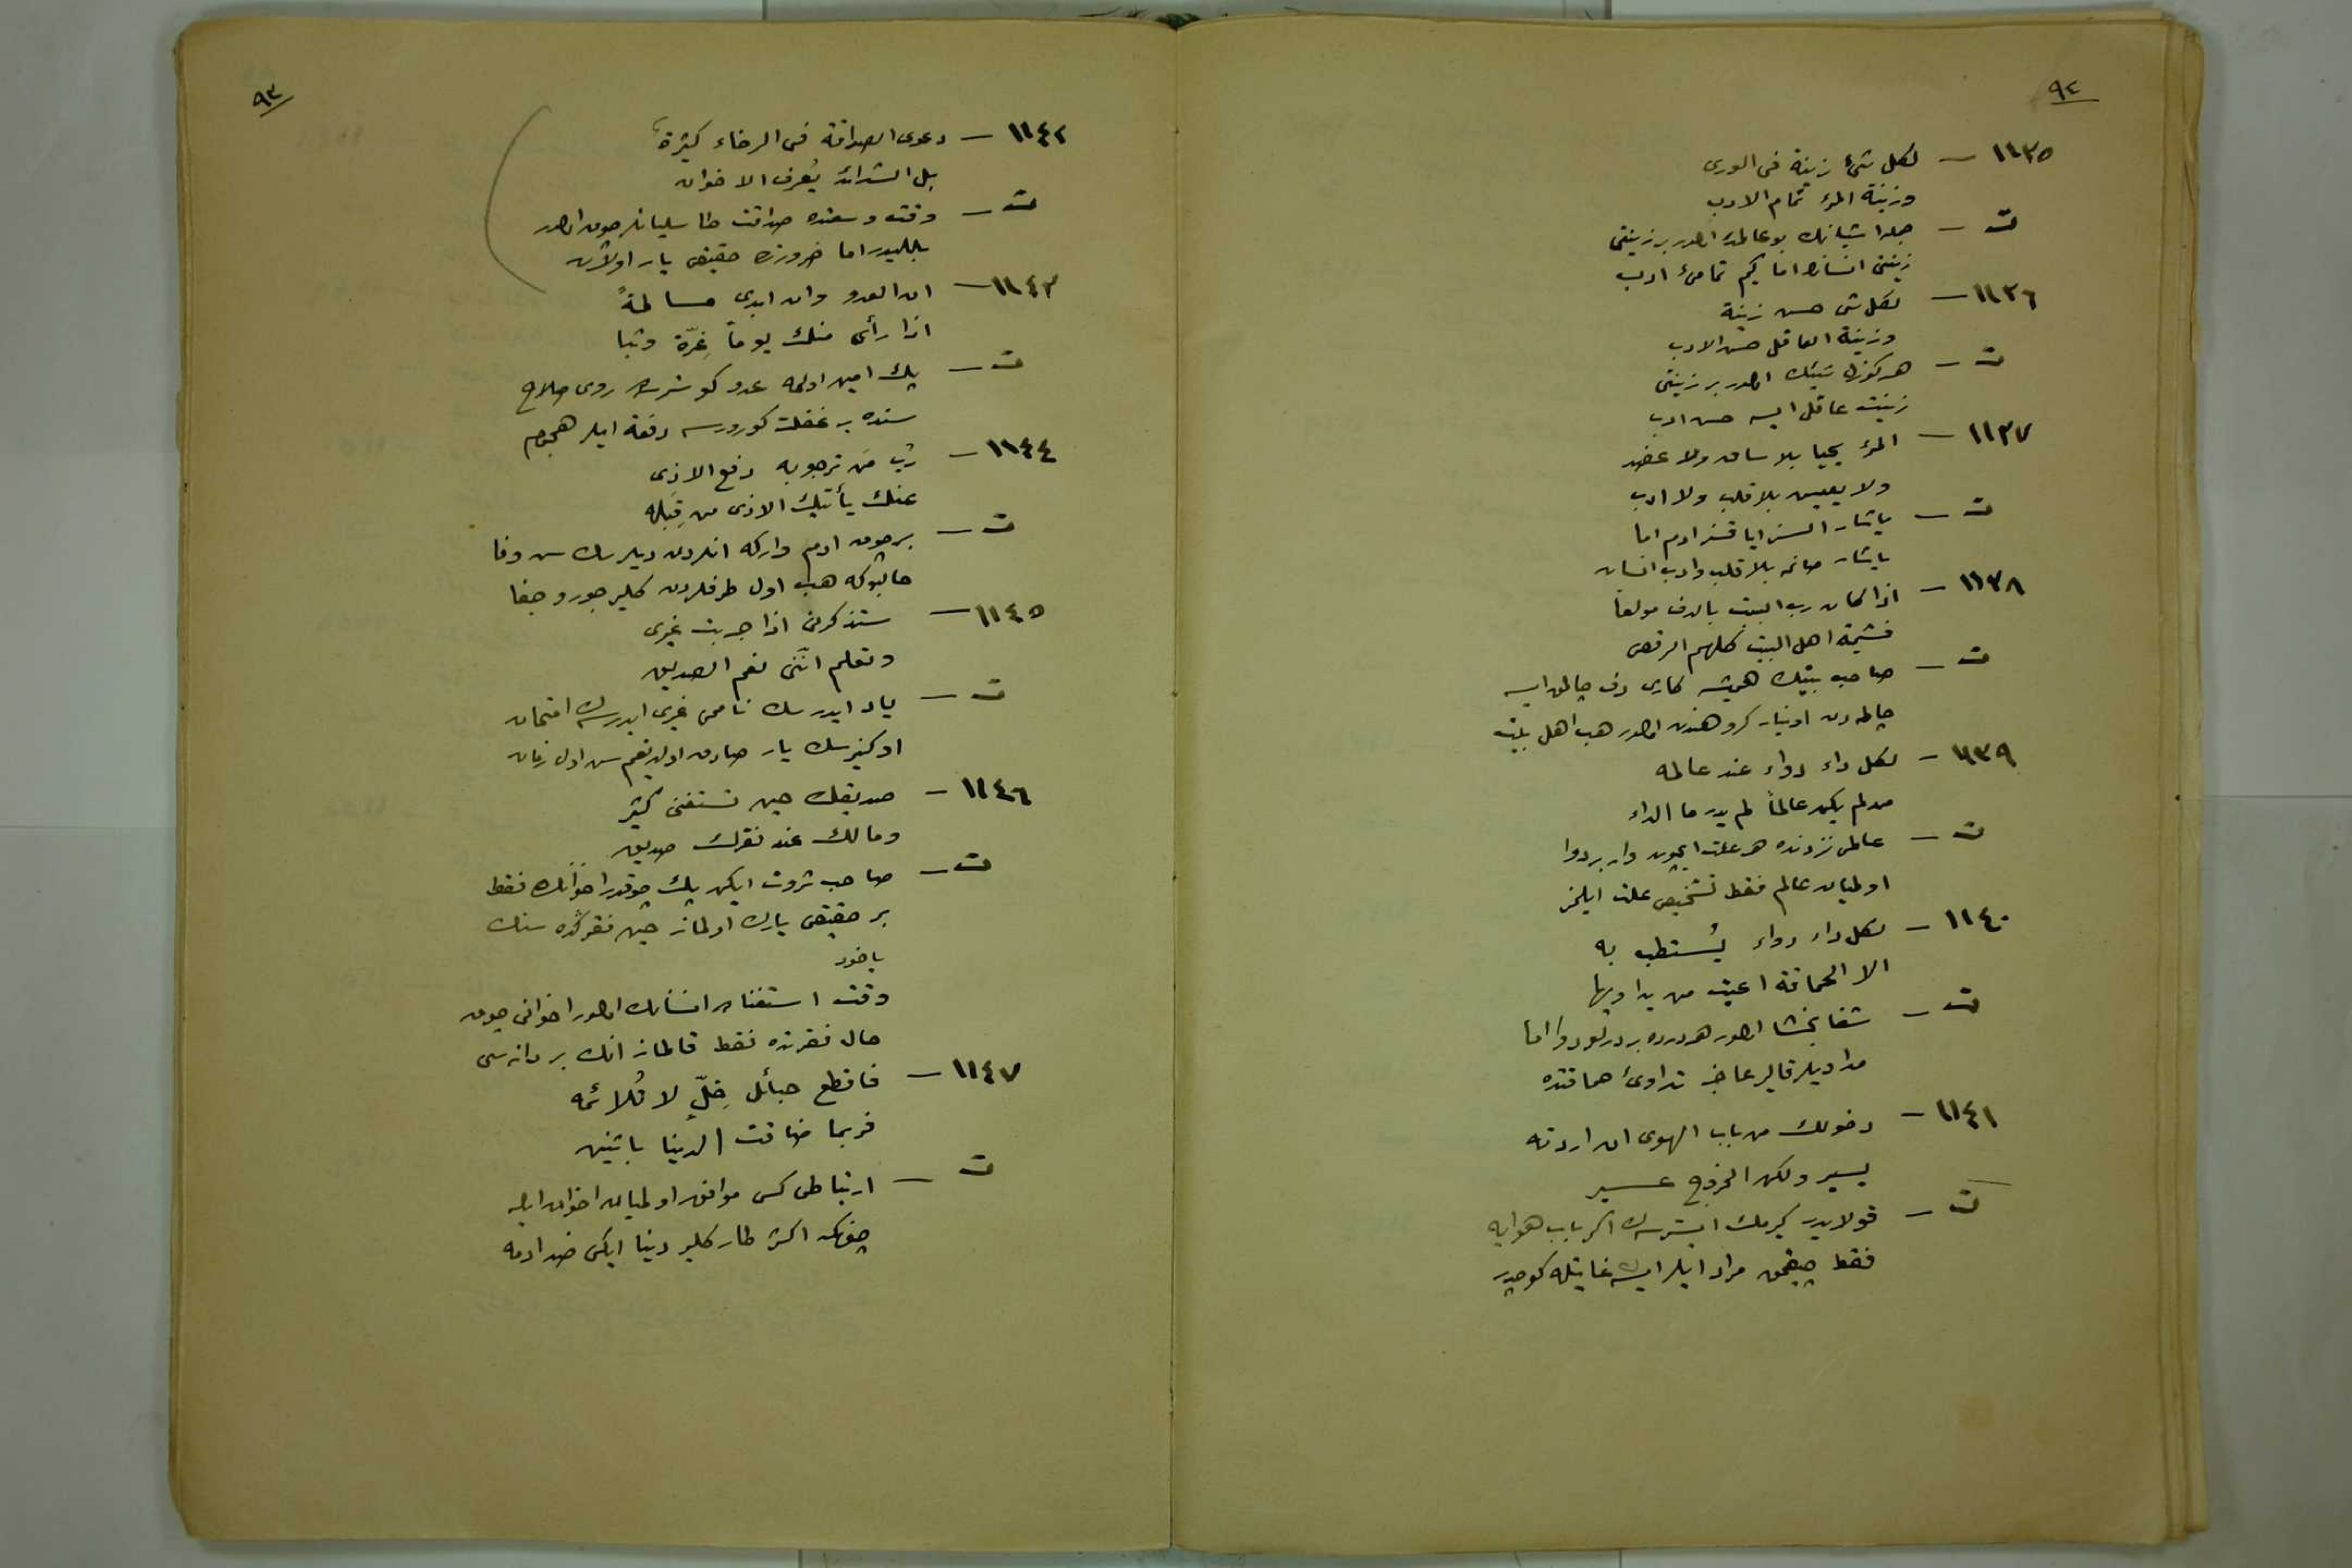 ٩٢
١١٣٥ — لكل شئ زينة فى الورى
وزينة المرء تمام الادب
ت — جمله اشيانك بو عالمده اولدر بر زينتى
زينتى انسانك اما كيم تمامئ ادب
١١٣٦ — لكل شى حسن زينة
وزينة العاقل حسن الادب
ت — هر كوزل شيئك اولدر بر زينتى
زينت عاقل ايسه حسن ادب
١١٣٧ — المرء يحيا بلا ساق ولا عضد
ولا يعيش بلا قلب ولا ادب
ت — ياشار السز اياقسز ادم اما
ياشار صانمه بلا قلب وادب انسان
١١٣٨ — اذا كان رب البيت بالدف مولعا
فشيمة اهل البيت كلهم الرقص
ت — صاحب بيتك هميشه كارى دف چالمق ايسه
چالمه دن اوينار كروهندن اولدر هب اهل بيت
١١٣٩ — لكل داء دواء عند عالمه
من لم يكن عالماً لم يدر ما الداء
ت — عالمى نزدنده هر علت ايچون وار بر دوا
اولميان عالم فقط تشخيص علت ايلمز
١١٤٠ — لكل داء دواء يُستطب به
الا الحماقة اعيت من يداويها
ت — شفا بخشا اولور هر درده بر درلو دوا اما
مداويلر قالير عاجز تداوئ حماقتده
١١٤١ — دخولك من باب الهوى ان اردته
يسير ولكن الخروج عسير
ت — قولايدر كيرمك ايسترسه ك اكر باب هوايه
فقط چيقمق مراد ايلر ايسه ك غايتله كوجدر
٩٣
١١٤٢ — دعوى الصداقة فى الرخاء كثيرة
بل الشدائد يُعرف الاخوان
ت — وقت وسعتده صداقت طاسليانلر چوق اولور
بللیدر اما ضرورتده حقيقى يار اولان
١١٤٣ — ان العدو وان ابدى مسالمةً
اذا رأى منك يوماً غِرّة وثبا
ت — پك امين اولمه عدو كوسترسه روى صلاح
سنده بر غفلت كورورسه دفعة ايلر هجوم
١١٤٤ — رُبّ مَن ترجو به دفع الاذى
عنك يأتيك الاذى من قِبَله
ت — بر چوق ادم واركه انلردن ديلرسك سن وفا
حالبوكه هب اول طرفلردن كلير جور و جفا
١١٤٥ — ستذكرنى اذا جربت غيرى
وتعلم انّنى نعم الصديق
ت — ياد ايدرسك نامى غيرى ايدرسه ك امتحان
اوكنيرسك يار صادق اولديغم سن اول زمان
١١٤٦ — صديقك حين تستغنى كثير
ومالك عند فقرك صديق
ت — صاحب ثروت ايكن پك چوقدر اخوانك فقط
بر حقيقى يارك اولماز حين فقركده سنك
ياخود
وقت استغناده انسانك اولور اخوانى چوق
حال فقرنده فقط قالماز انك بر دانه سى
١١٤٧ — فاقطع حبائل خِلّ لا تُلائمه
فربما ضاقت الدينا باثنين
ت — ارتباطى كس موافق اولميان اخوان ايله
چونكه اكثر طار كلير دنيا ايكى ضد ادمه